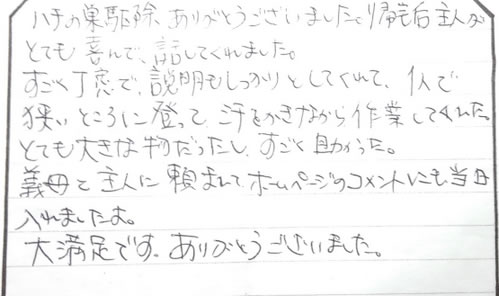 ハチの巣駆除、ありがとうございました。帰宅后主人が
とても喜んで、話してくれました。
すごく丁寧で、説明もしっかりとしてくれて、1人で
狭いところに登って、汗をかきながら作業してくれた。
とても大きな物だったし、すごく助かった。
義母と主人に頼まれて、ホームページのコメントにも、当日
入れましたよ。
大満足です。ありがとうございました。